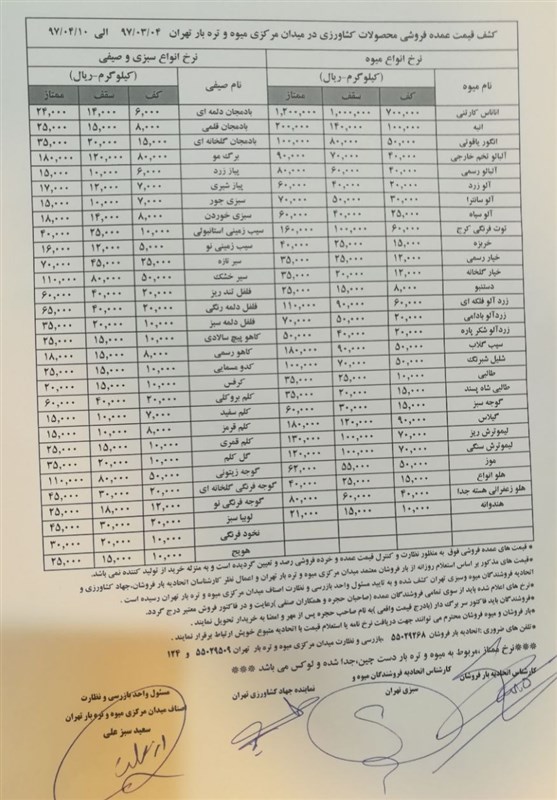 کشف قیمت عمده فروشی محصولات کشاورزی در میدان مرکزی میوه و تره بار تهران ۹۷/۰۳/۰۴ الی ۹۷/۰۴/۱۰
نرخ انواع میوه نرخ انواع سبزی و صیفی
نام میوه (کیلوگرم-ریال) نام صیفی (کیلوگرم-ریال)
کف سقف ممتاز کف سقف ممتاز
آناناس کارتنی ۷۰۰,۰۰۰ ۱,۰۰۰,۰۰۰ ۱,۲۰۰,۰۰۰ بادمجان دلمه ای ۶,۰۰۰ ۱۴,۰۰۰ ۲۴,۰۰۰
انبه ۱۰۰,۰۰۰ ۱۴۰,۰۰۰ ۲۰۰,۰۰۰ بادمجان قلمی ۸,۰۰۰ ۱۵,۰۰۰ ۲۵,۰۰۰
انگور یاقوتی ۵۰,۰۰۰ ۸۰,۰۰۰ ۱۰۰,۰۰۰ بادمجان گلخانه ای ۱۵,۰۰۰ ۲۰,۰۰۰ ۳۵,۰۰۰
آلبالو تخم خارجی ۴۰,۰۰۰ ۷۰,۰۰۰ ۹۰,۰۰۰ برگ مو ۸۰,۰۰۰ ۱۲۰,۰۰۰ ۱۸۰,۰۰۰
آلبالو رسمی ۴۰,۰۰۰ ۶۰,۰۰۰ ۸۰,۰۰۰ پیاز زرد ۶,۰۰۰ ۱۰,۰۰۰ ۱۵,۰۰۰
آلو زرد ۲۰,۰۰۰ ۴۰,۰۰۰ ۶۰,۰۰۰ پیاز شیری ۷,۰۰۰ ۱۲,۰۰۰ ۱۷,۰۰۰
آلو سانترا ۳۰,۰۰۰ ۵۰,۰۰۰ ۷۰,۰۰۰ سبزی جور ۷,۰۰۰ ۱۰,۰۰۰ ۱۵,۰۰۰
آلو سیاه ۲۵,۰۰۰ ۴۰,۰۰۰ ۶۰,۰۰۰ سبزی خوردن ۸,۰۰۰ ۱۴,۰۰۰ ۱۸,۰۰۰
توت فرنگی کرج ۶۰,۰۰۰ ۱۰۰,۰۰۰ ۱۶۰,۰۰۰ سیب زمینی استانبولی ۱۰,۰۰۰ ۲۵,۰۰۰ ۴۰,۰۰۰
خربزه ۱۵,۰۰۰ ۲۵,۰۰۰ ۴۰,۰۰۰ سیب زمینی نو ۵,۰۰۰ ۱۲,۰۰۰ ۱۶,۰۰۰
خیار رسمی ۱۲,۰۰۰ ۲۵,۰۰۰ ۳۵,۰۰۰ سیر تازه ۲۵,۰۰۰ ۴۵,۰۰۰ ۷۰,۰۰۰
خیار گلخانه ۱۲,۰۰۰ ۲۰,۰۰۰ ۳۵,۰۰۰ سیر خشک ۵۰,۰۰۰ ۸۰,۰۰۰ ۱۱۰,۰۰۰
دستنبو ۸,۰۰۰ ۱۵,۰۰۰ ۲۵,۰۰۰ فلفل تند ریز ۲۰,۰۰۰ ۴۰,۰۰۰ ۶۰,۰۰۰
زرد آلو فلکه ای ۶۰,۰۰۰ ۹۰,۰۰۰ ۱۱۰,۰۰۰ فلفل دلمه رنگی ۲۰,۰۰۰ ۴۰,۰۰۰ ۶۵,۰۰۰
زردآلو بادامی ۲۰,۰۰۰ ۵۰,۰۰۰ ۷۰,۰۰۰ فلفل دلمه سبز ۱۰,۰۰۰ ۲۰,۰۰۰ ۳۵,۰۰۰
زردآلو شکر پاره ۲۰,۰۰۰ ۴۰,۰۰۰ ۵۰,۰۰۰ کاهو پیچ سالادی ۱۰,۰۰۰ ۱۵,۰۰۰ ۲۵,۰۰۰
سیب گلاب ۵۰,۰۰۰ ۹۰,۰۰۰ ۱۸۰,۰۰۰ کاهو رسمی ۸,۰۰۰ ۱۵,۰۰۰ ۱۸,۰۰۰
شلیل شبرنگ ۵۰,۰۰۰ ۷۰,۰۰۰ ۱۰۰,۰۰۰ کدو مسمایی ۱۰,۰۰۰ ۱۵,۰۰۰ ۲۵,۰۰۰
طالبی ۱۰,۰۰۰ ۲۵,۰۰۰ ۳۵,۰۰۰ کرفس ۱۰,۰۰۰ ۱۵,۰۰۰ ۲۰,۰۰۰
طالبی شاه پسند ۱۵,۰۰۰ ۲۰,۰۰۰ ۳۵,۰۰۰ کلم بروکلی ۲۰,۰۰۰ ۴۰,۰۰۰ ۶۰,۰۰۰
گوجه سبز ۱۵,۰۰۰ ۳۰,۰۰۰ ۶۰,۰۰۰ کلم سفید ۷,۰۰۰ ۱۰,۰۰۰ ۱۵,۰۰۰
گیلاس ۹۰,۰۰۰ ۱۲۰,۰۰۰ ۱۸۰,۰۰۰ کلم قرمز ۸,۰۰۰ ۱۰,۰۰۰ ۱۵,۰۰۰
لیموترش ریز ۷۰,۰۰۰ ۱۰۰,۰۰۰ ۱۳۰,۰۰۰ کلم قمری ۱۰,۰۰۰ ۱۵,۰۰۰ ۲۵,۰۰۰
لیموترش سنگی ۷۰,۰۰۰ ۱۰۰,۰۰۰ ۱۲۰,۰۰۰ گل کلم ۱۰,۰۰۰ ۲۰,۰۰۰ ۳۵,۰۰۰
موز ۵۰,۰۰۰ ۵۵,۰۰۰ ۶۲,۰۰۰ گوجه زیتونی ۵۰,۰۰۰ ۸۰,۰۰۰ ۱۱۰,۰۰۰
هلو انواع ۱۵,۰۰۰ ۲۵,۰۰۰ ۴۰,۰۰۰ گوجه فرنگی گلخانه ای ۲۰,۰۰۰ ۳۰,۰۰۰ ۴۵,۰۰۰
هلو زعفرانی هسته جدا ۴۰,۰۰۰ ۶۰,۰۰۰ ۸۰,۰۰۰ گوجه فرنگی نو ۱۲,۰۰۰ ۱۸,۰۰۰ ۲۵,۰۰۰
هندوانه ۱۰,۰۰۰ ۱۵,۰۰۰ ۲۱,۰۰۰ لوبیا سبز ۲۰,۰۰۰ ۳۰,۰۰۰ ۴۵,۰۰۰
نخود فرنگی ۱۰,۰۰۰ ۲۰,۰۰۰ ۳۰,۰۰۰
هویج ۱۰,۰۰۰ ۱۵,۰۰۰ ۲۵,۰۰۰
*قیمت های عمده فروشی فوق به منظور نظارت و کنترل قیمت عمده و خرده فروشی رصد و تعیین گردیده است و به منزله خرید از تولید کننده نمی باشد.
*قیمت های مذکور بر اساس استعلام روزانه از بار فروشان معتمد میدان مرکزی میوه و تره بار تهران و اعمال نظر کارشناسان اتحادیه بار فروشان،جهاد کشاورزی و
اتحادیه فروشندگان میوه وسبزی تهران کشف شده و به تایید مسئول واحد بازرسی و نظارت اصناف میدان مرکزی میوه و تره بار تهران رسیده است .
*نرخ های اعلام شده باید از سوی تمامی فروشندگان عمده (صاحبان حجره و همکاران صنفی )رعایت و در فاکتور فروش معتبر درج گردد.
*فروشندگان باید فاکتور سر برگ دار (بادرج قیمت واقعی )به نام صاحب حجره پس از مهر و امضا به خریدار تحویل نمایند .
*بار فروشان و میوه فروشان محترم می توانند جهت دریافت نرخ نامه یا استعلام قیمت با اتحادیه متبوع خویش ارتباط برقرار نمایند .
*تلفن های ضروری :اتحادیه بار فروشان ۵۵۰۲۹۲۶۸ ،بازرسی و نظارت میدان مرکزی میوه و تره بار تهران ۵۵۰۲۹۵۰۹ و ۱۲۴
***نرخ ممتاز ،مربوط به میوه و تره بار دست چین،جدا شده و لوکس می باشد ***
کارشناس اتحادیه بار فروشان
کارشناس اتحادیه فروشندگان میوه و
سبزی تهران
نماینده جهاد کشاورزی تهران
مسئول واحد بازرسی و نظارت
اصناف میدان مرکزی میوه و تره بار تهران
سعید سبز علی